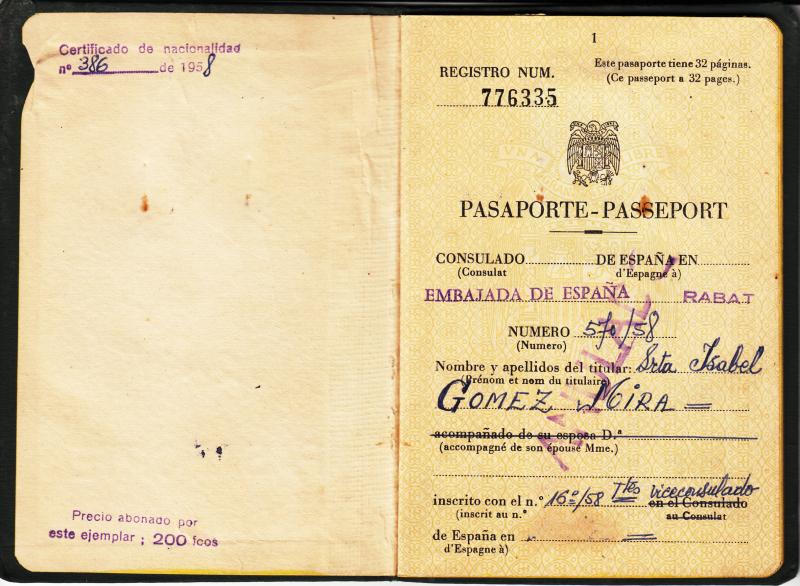 Certificado de nacionalidad
nº 386 de 1958
Precio abonado por
este ejemplar ; 200 fcos
1
REGISTRO NUM.
776335
Este pasaporte tiene 32 páginas.
(Ce passeport a 32 pages.)
PASAPORTE-PASSEPORT
CONSULADO DE ESPAÑA EN
(Consulat d'Espagne à)
EMBAJADA DE ESPAÑA RABAT
NUMERO 570/58
(Numero)
Nombre y apellidos del titular: Srta Isabel
(Prénom et nom du titulaire)
GOMEZ MIRA =
acompañado de su esposa D.ª
(accompagné de son épouse Mme.)
inscrito con el n.º 16º/58 Ttes viceconsulado
en el Consulado
(inscrit au n.º au Consulat
de España en =
d'Espagne à)